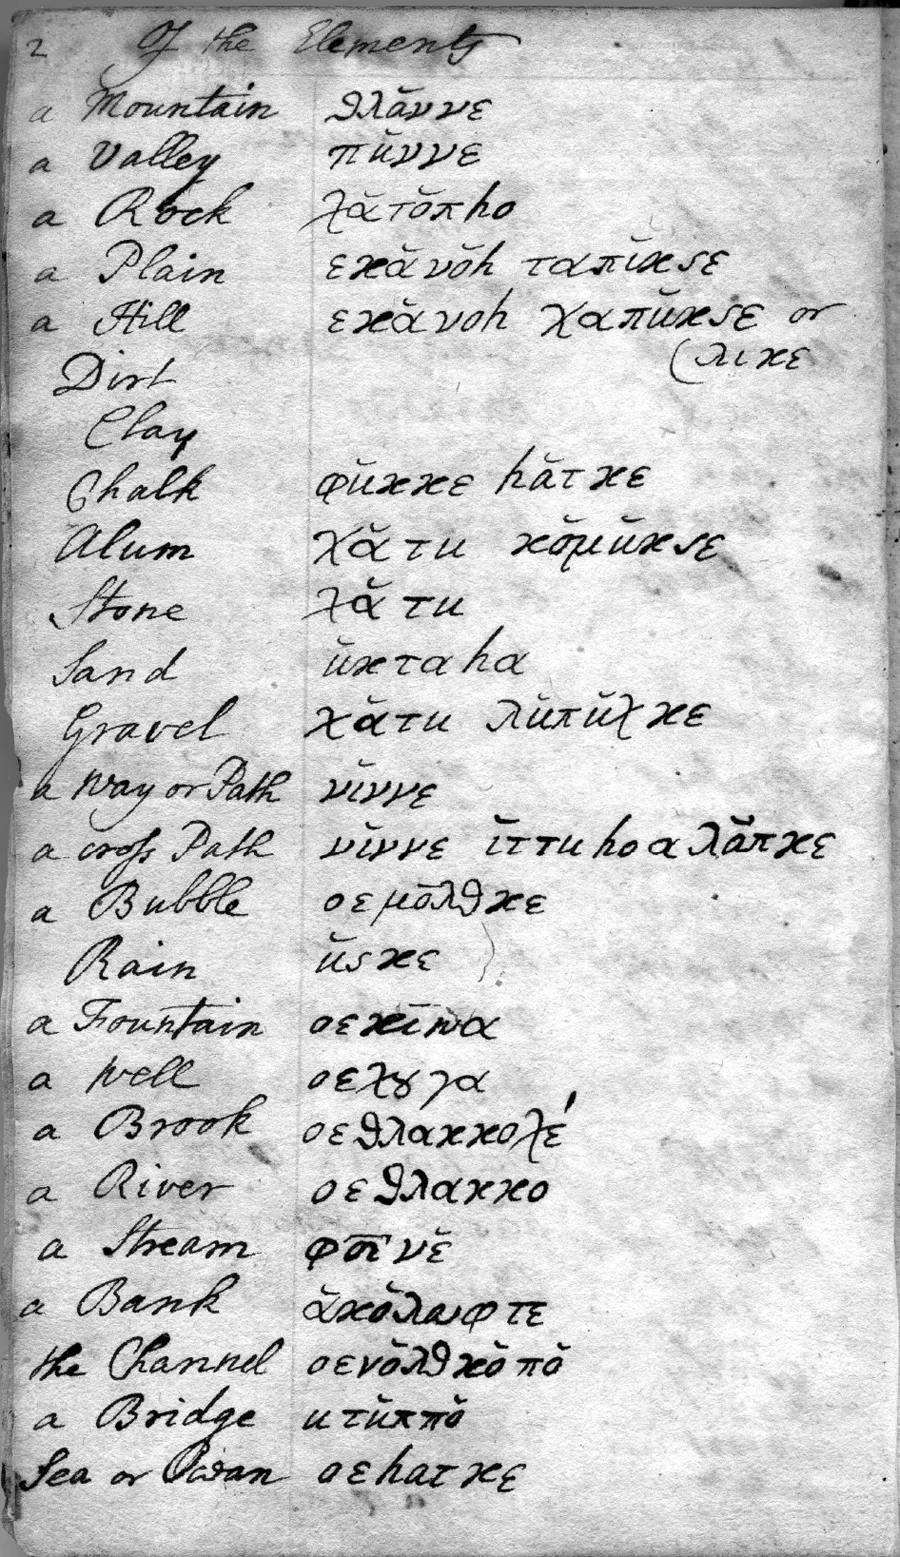 2 Of the Elements
a Mountain ϑλᾰννε
a Valley πῠννε
a Rock λᾰτŏπhο
a Plain εκᾰνŏh ταπῐκςε
a Hill εκᾰνοh χαπŭκςε or
(λικε
Dirt
Clay
Chalk φŭκκε hᾰτκε
Alum χᾰτu κŏμŭκςε
Stone λᾰτu
Sand ŭκταhα
Gravel χᾰτu λŭπŭλκε
a way or Path νῐννε
a cross Path νῐννε ῐττuhοαλᾰπκε
a Bubble οεμōλϑκε
Rain ŭςκε
a Fountain οεκῑπα
a Well οελȣγα
a Brook οεϑλακκολέ
a River οεϑλακκο
a Stream φο̄ῑνε̆
a Bank ᾰκŏλαφτε
the Channel οενŏλϑκŏπŏ
a Bridge uτŭππŏ
Sea or Ocean οεhατκε